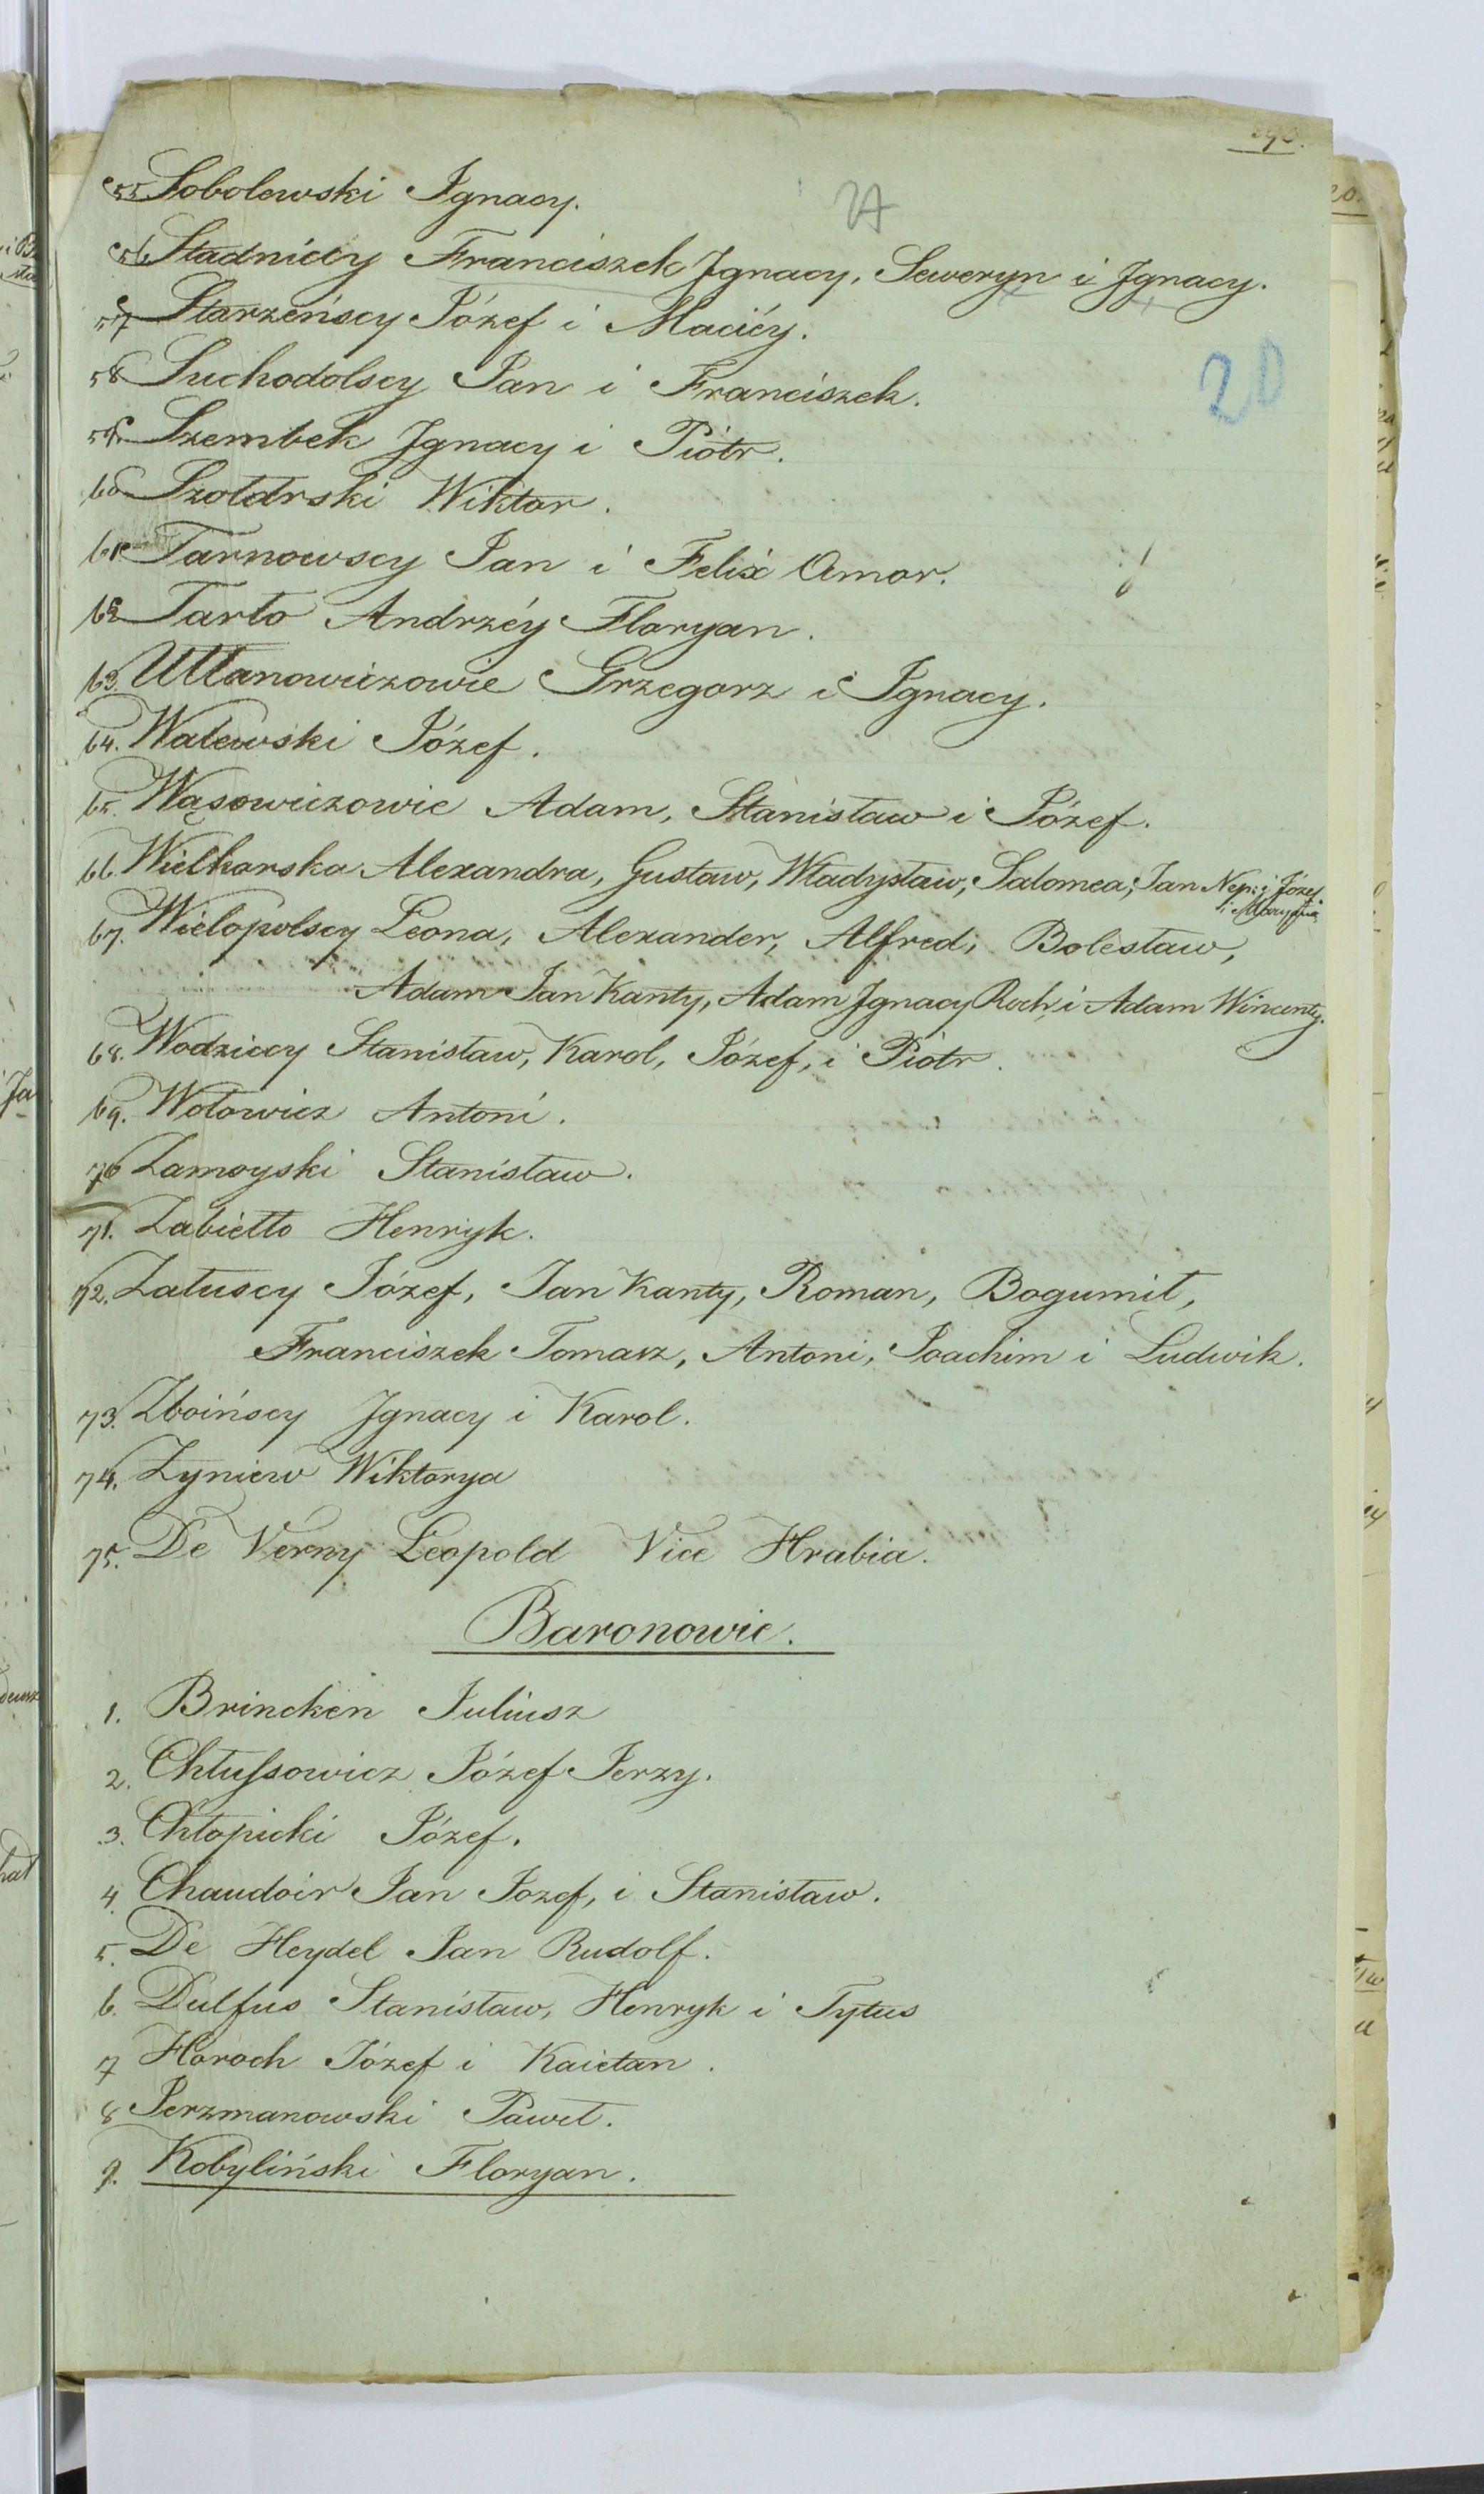 27
20
55 Sobolewski Ignacy.
56 Stadniccy Franciszek Ignacy, Seweryn i Ignacy.
57 Starzeńscy Józef i Maciéy.
58 Suchodolscy Jan i Franciszek.
59. Szembek Ignacy i Piotr.
60 Szołdrski Wiktor.
61 Tarnowscy Jan i Felix Amor.
62 Tarło Andrzéy Floryan.
63. Ułłanowiczowie Grzegorz i Ignacy.
64. Walewski Józef.
65. Wąsowiczowie Adam, Stanisław i Józef.
66. Wielhorska Alexandra, Gustaw, Władysław, Salomea, Jan Nep: i Józef
67. Wielopolscy Leona, Alexander, Alfred, Bolesław,
Adam Jan Kanty, Adam Ignacy Roch i Adam Wincenty.
68. Wodziccy Stanisław, Karol, Józef, i Piotr.
69. Wołowicz Antoni.
70 Zamoyski Stanisław.
71. Zabiełło Henryk.
72. Załuscy Józef, Jan Kanty, Roman, Bogumił,
Franciszek Tomasz, Antoni, Joachim i Ludwik.
73. Zboińscy Ignacy i Karol.
74. Zyniew Wiktorya
75. De Verny Leopold Vice Hrabia.
Baronowie.
1. Brincken Juliusz
2. Chłussowicz Józef Jerzy.
3. Chłopicki Józef.
4. Chaudoir Jan Jozef, i Stanisław.
5. De Heydel Jan Rudolf.
6. Dulfus Stanisław, Henryk i Tytus
7 Horoch Józef i Kaietan.
8 Jerzmanowski Paweł.
9. Kobyliński Floryan.